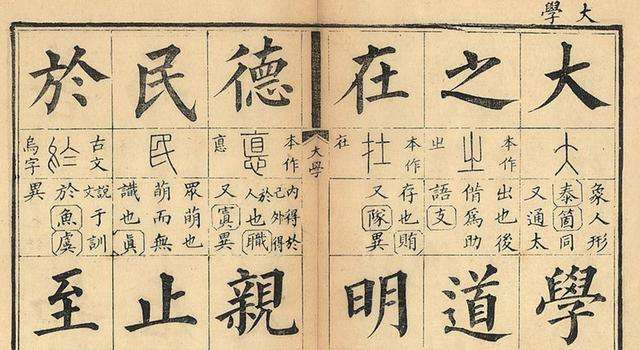 大學
大
象人形
又通太
泰箇同
學
之
本作㞢
出也後
偕為助
語支
道
在
本作
在
存也賄
又隊異
明
大學
德
本作悳
內得於
己外得
於人也職
又寘異
親
民
眾萌也
萌而無
識也眞
止
於
古文
烏字
說文于訓
於魚虞
異
至